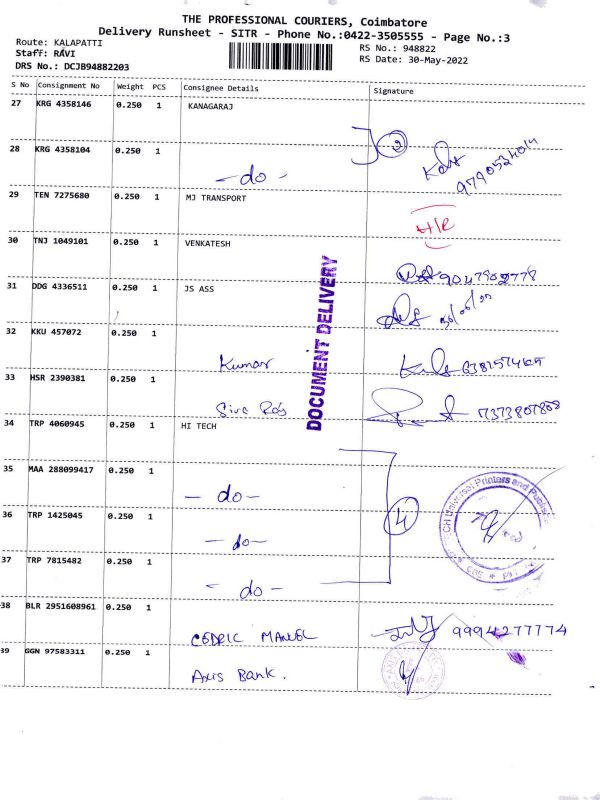 THE PROFESSIONAL COURIERS, Coimbatore
Delivery Runsheet - SITR - Phone No.:0422-3505555 - Page No.:3
Route: KALAPATTI
RS No.: 948822
Staff: RAVI
RS Date: 30-May-2022
DRS No.: DCJB94882203
S No Consignment No Weight PCS Consignee Details Signature
27 KRG 4358146 0.250 1 KANAGARAJ
2
28 KRG 4358104 0.250 1
- do -
29 TEN 7275680 0.250 1 MJ TRANSPORT
30 TNJ 1049101 0.250 1 VENKATESH
DOCUMENT DELIVERY
31 DDG 4336511 0.250 1 JS ASS
32 KKU 457072 0.250 1
Kumar
33 HSR 2390381 0.250 1
7373807808
34 TRP 4060945 0.250 1 HI TECH
35 MAA 288099417 0.250 1
- do -
4
Universal Printers and
36 TRP 1425045 0.250 1
- do -
37 TRP 7815482 0.250 1
- do -
38 BLR 2951608961 0.250 1
CEDRIC MANUEL 9994277774
39 GGN 97583311 0.250 1
Axis Bank.